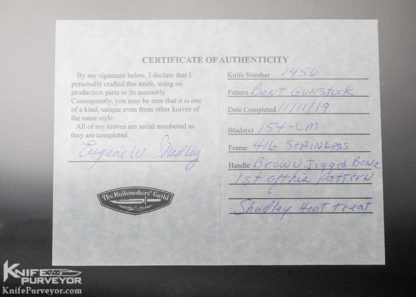 CERTIFICATE OF AUTHENTICITY
By my signature below, I declare that I
personally crafted this knife, using no
production parts in its assembly.
Consequently, you may be sure that it is one
of a kind, unique even from other knives of
the same style.
All of my knives are serial numbered as
they are completed.
Eugene W. Shadley
The Knifemakers' Guild
Knife Number 1456
Pattern Bent Gunstock
Date Completed 11/11/19
Blade(s) 154-CM
Frame 416 Stainless
Handle Brown Jigged Bone
1st of this Pattern
Shadley Heat Treat
KNIFE
PURVEYOR
KnifePurveyor.com